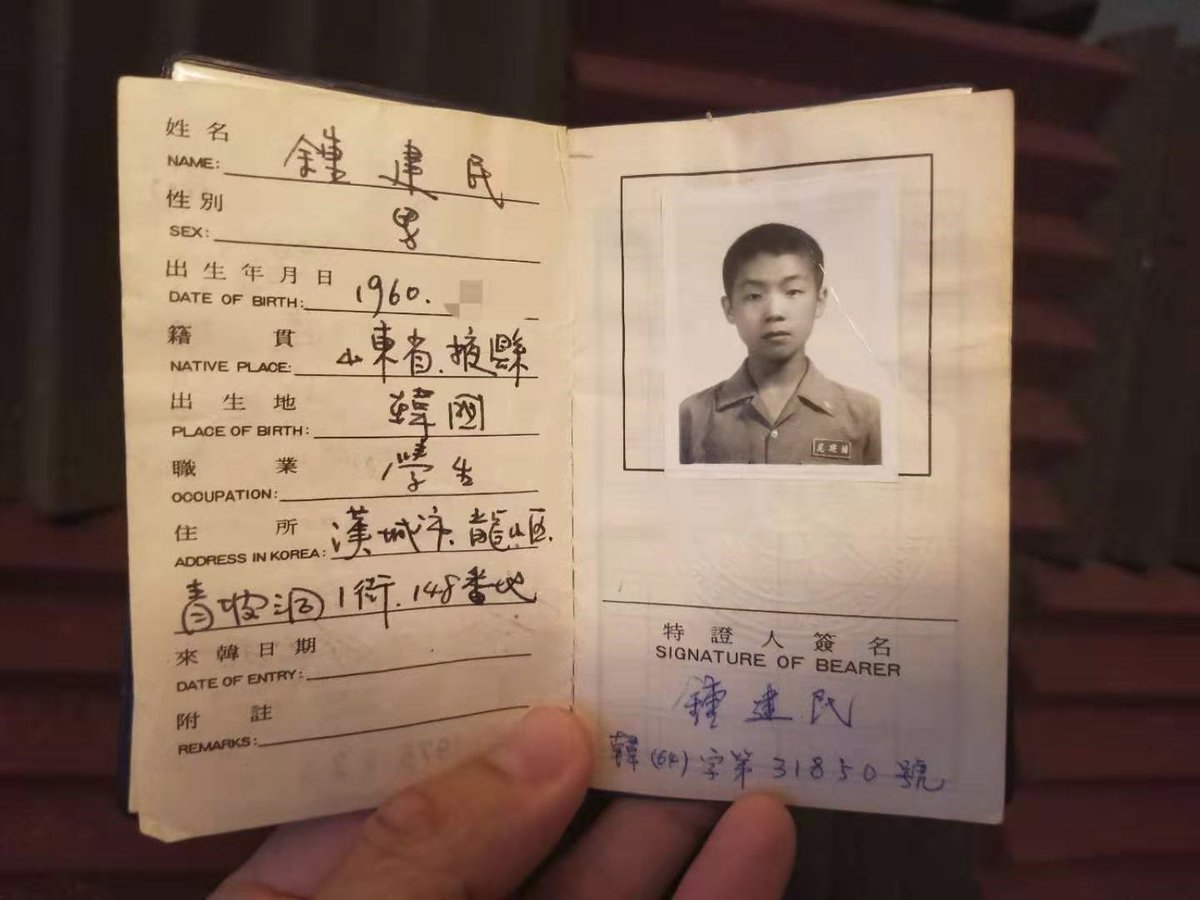 姓名
NAME: 鍾建民
性別
SEX: 男
出生年月日
DATE OF BIRTH: 1960.
籍貫
NATIVE PLACE: 山東省.掖縣
出生地
PLACE OF BIRTH: 韓國
職業
OCCUPATION: 學生
住所
ADDRESS IN KOREA: 漢城市.龍山區.
青坡洞1街.148番地
來韓日期
DATE OF ENTRY:
附註
REMARKS:
特證人簽名
SIGNATURE OF BEARER
鍾建民
韓(64)字第31850號